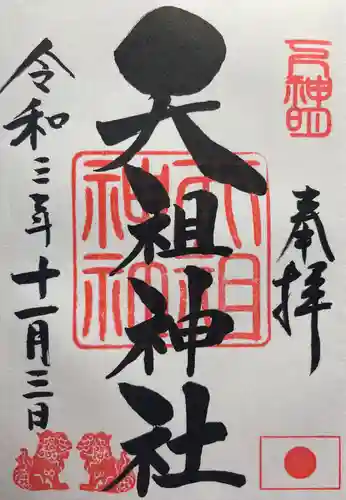 奉拝
天祖神社
天祖
神社
令和三年十一月三日